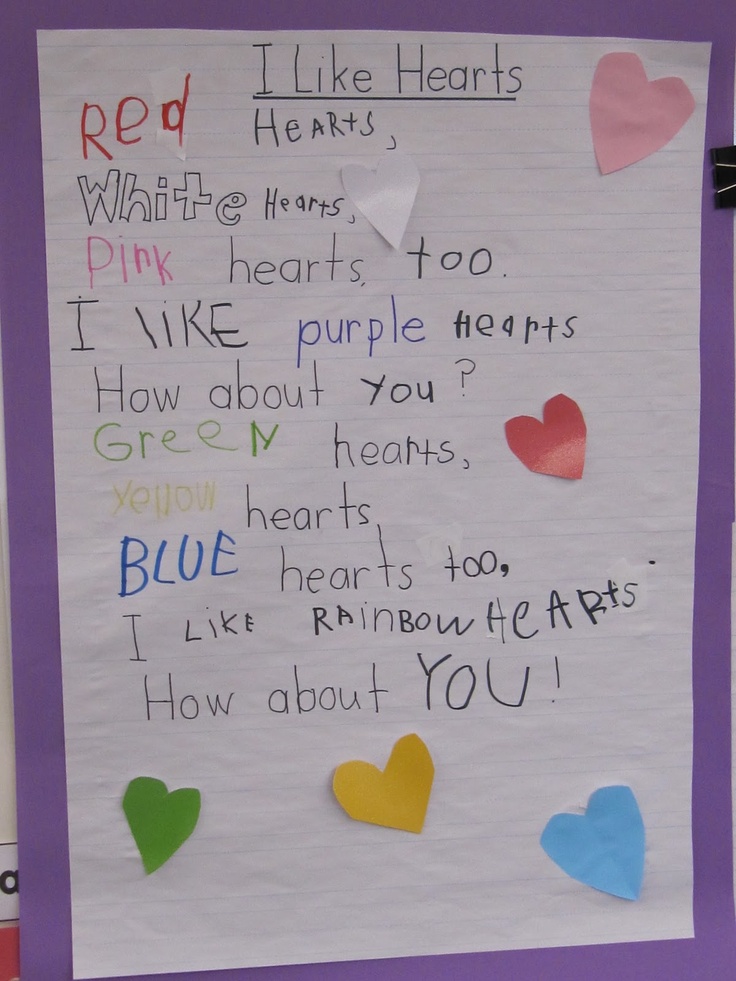 I Like Hearts
Red HeARtS,
White Hearts,
Pink hearts, too.
I liKE purple Hearts
How about you?
GreeN hearts,
yellow hearts,
BLUE hearts too,
I LiKE RAinBOW HeARts.
How about YOU!
a